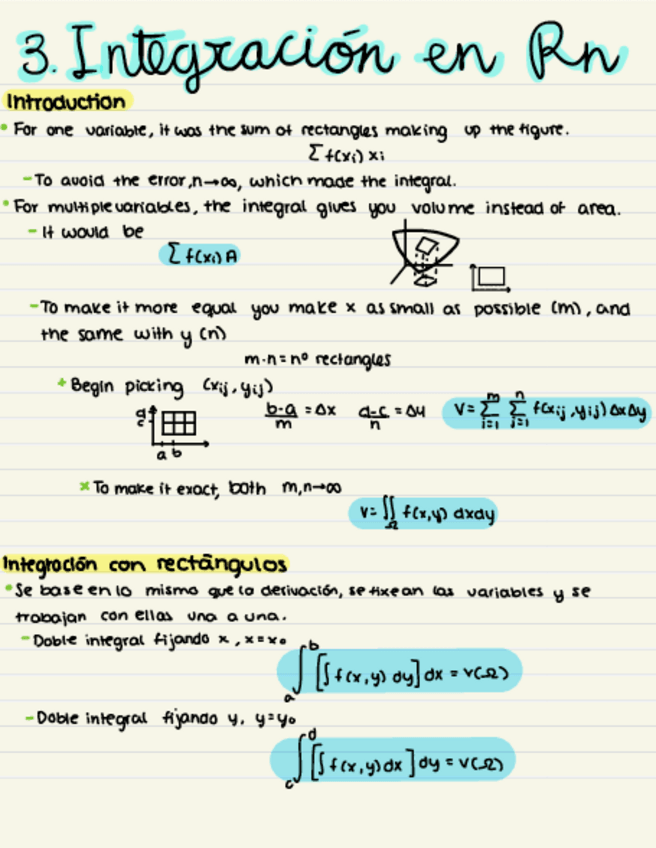 3. Integración en Rn
Introduction
• For one variable, it was the sum of rectangles making up the figure.
Σ f(xi) xi
- To avoid the error, n→∞, which made the integral.
• For multiple variables, the integral gives you volume instead of area.
- It would be
Σ f(xi) A
- To make it more equal you make x as small as possible (m), and
the same with y (n)
m·n = nº rectangles
+ Begin picking (xij, yij)
d c a b (b-a)/m = Δx (d-c)/n = Δy V = Σ_{i=1}^{m} Σ_{j=1}^{n} f(xij, yij) ΔxΔy
× To make it exact, both m,n→∞
V = ∬_Ω f(x,y) dxdy
Integración con rectángulos
• Se base en lo mismo que la derivación, se fixean las variables y se
trabajan con ellas una a una.
- Doble integral fijando x, x=x₀
∫_a^b [∫ f(x,y) dy] dx = V(Ω)
- Doble integral fijando y, y=y₀
∫_c^d [∫ f(x,y) dx] dy = V(Ω)